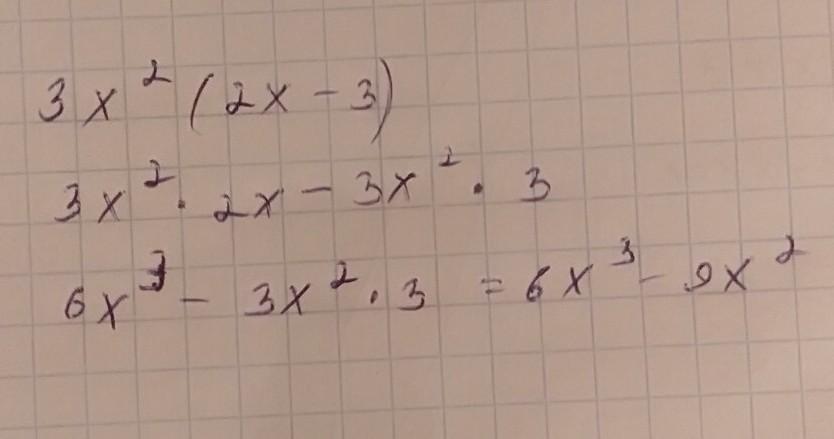 3x²(2x-3)
3x²·2x-3x²·3
6x³-3x²·3=6x³-9x²